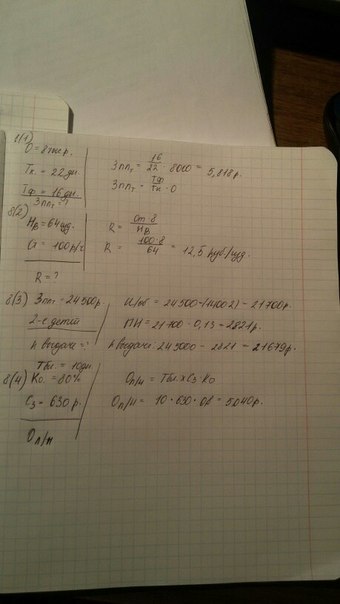 в(1)
О = 8 тыс р.
Тк = 22 дн.
Тф = 16 дн.
Зплт = ?
Зплт = 16/22 · 8000 = 5,818 р.
Зплт = Тф/Тк · О
в(2)
Нв = 64 ед
а = 100 р/ч
R = ?
R = от·8/Нв
R = 100·8/64 = 12,5 руб/ед.
в(3) Зплт - 24500 р.
2-е детей
к выдаче = ?
И/об = 24500 - (1400·2) = 21700 р.
ПН = 21700 · 0,13 = 2821 р.
к выдачи = 24500 - 2821 = 21679 р.
в(4)
Тбл = 10 дн.
Ко = 80%
Сз = 630 р.
Оп/н
Оп/н = Тбл x Сз · Ко
Оп/н = 10 · 630 · 0,8 = 5040 р.